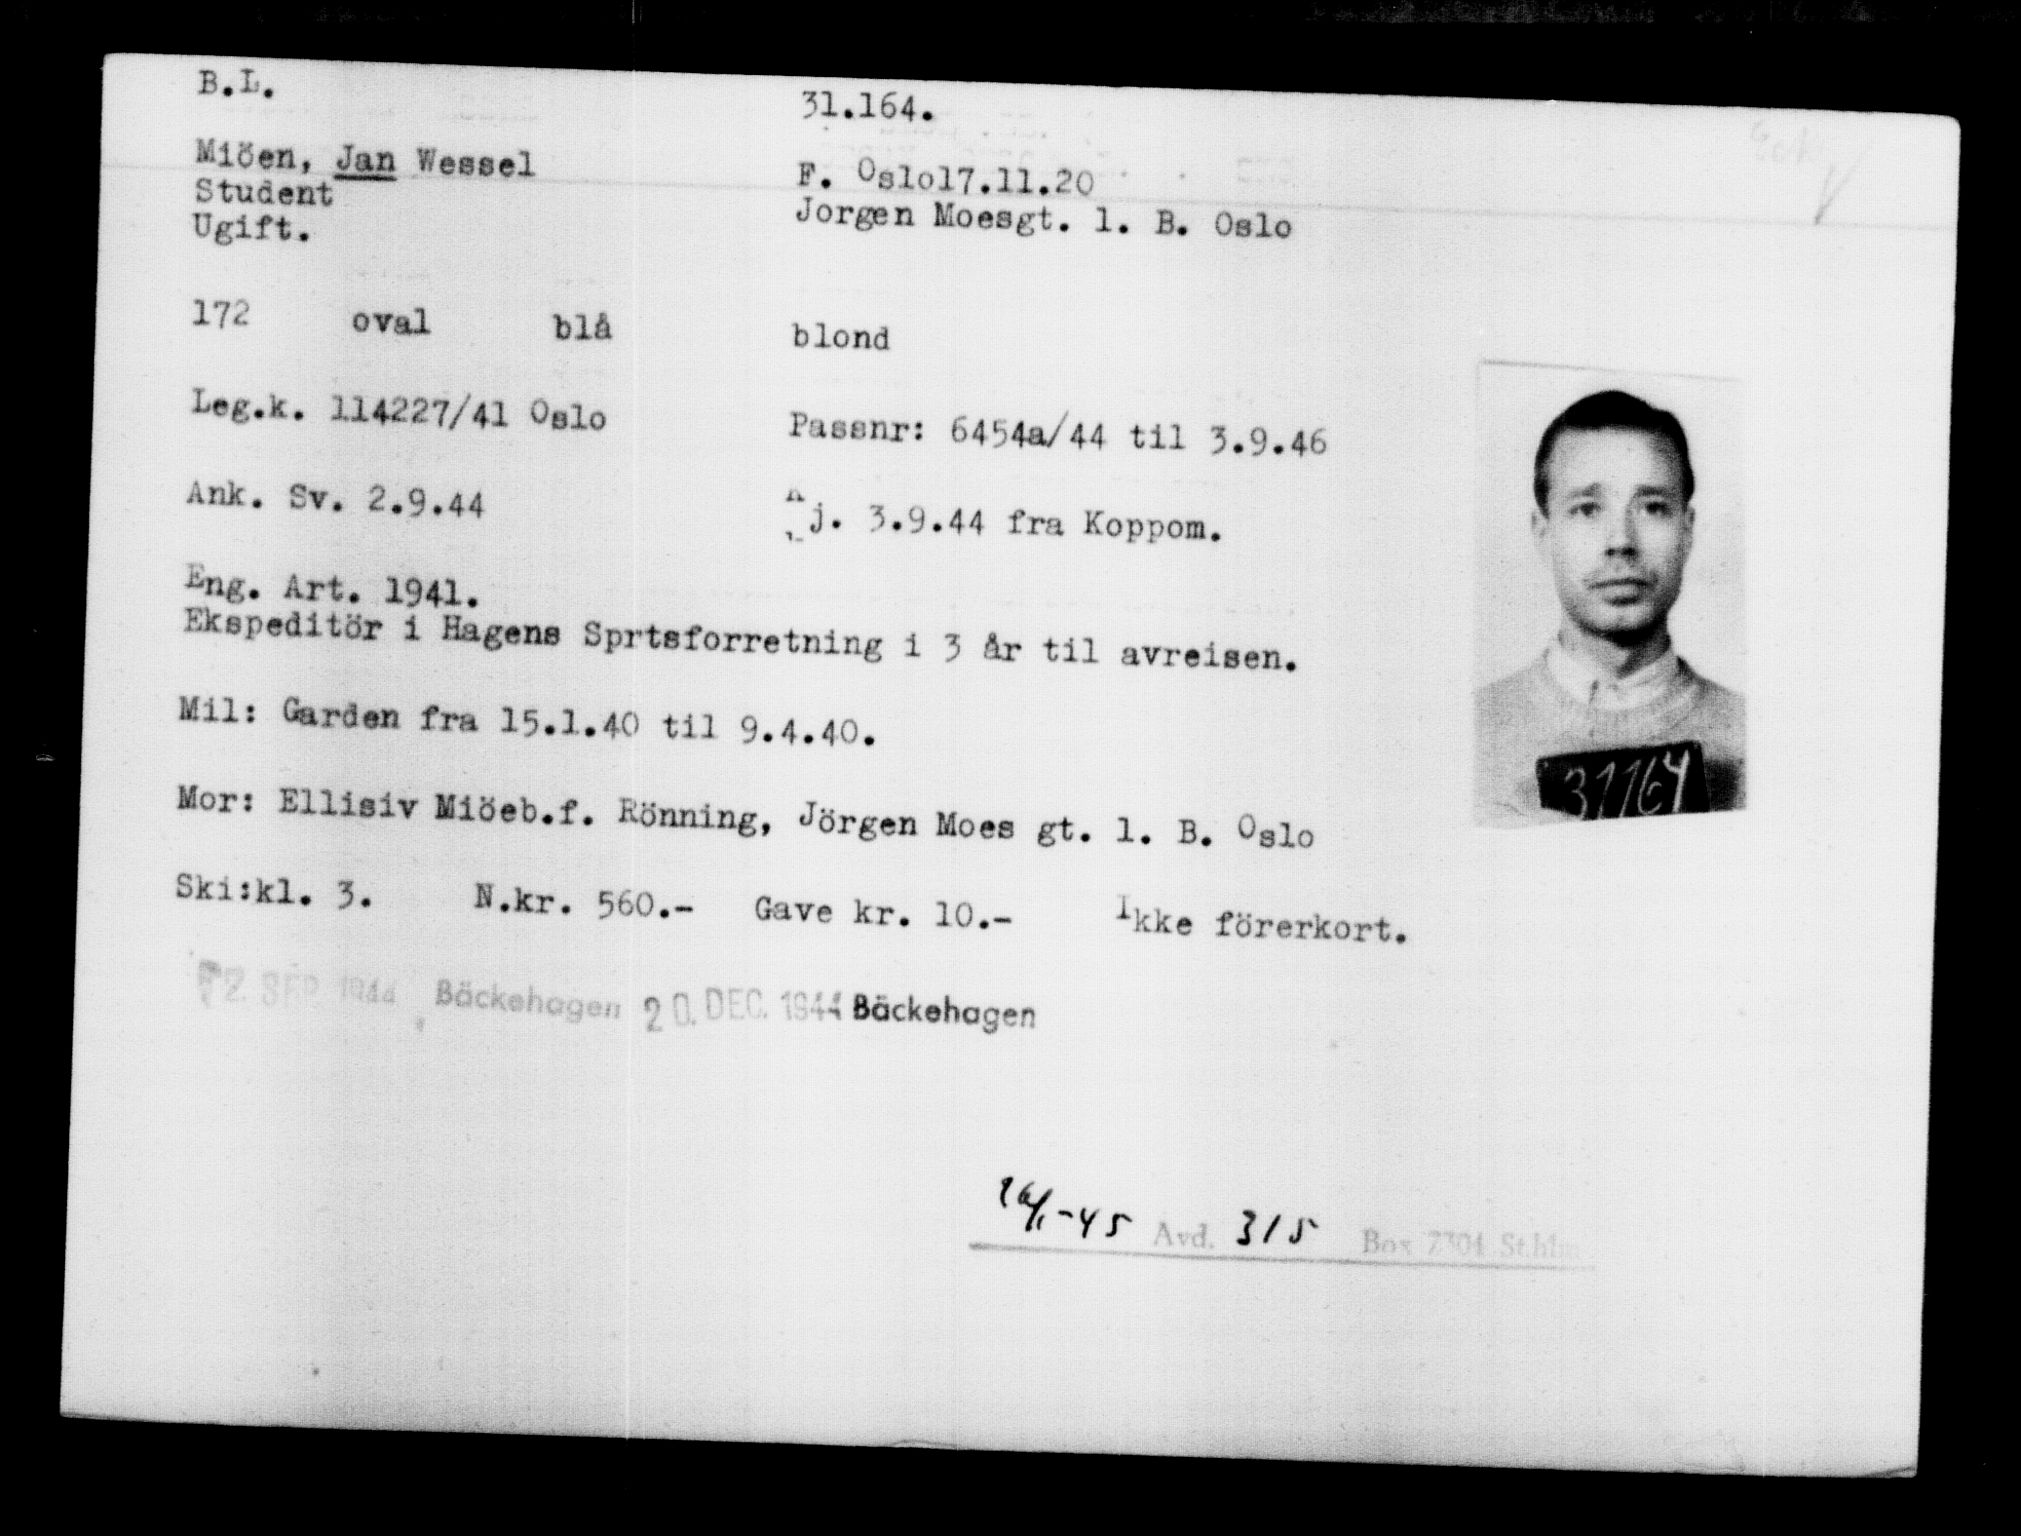 B.L.
31.164.
Miöen, Jan Wessel
F. Oslo17.11.20
Student
Jorgen Moesgt. 1. B. Oslo
Ugift.
172 oval blå blond
Leg.k. 114227/41 Oslo
Passnr: 6454a/44 til 3.9.46
Ank. Sv. 2.9.44
j. 3.9.44 fra Koppom.
Eng. Art. 1941.
Ekspeditör i Hagens Sprtsforretning i 3 år til avreisen.
Mil: Garden fra 15.1.40 til 9.4.40.
Mor: Ellisiv Miöeb.f. Rönning, Jörgen Moes gt. 1. B. Oslo
Ski:kl. 3. N.kr. 560.- Gave kr. 10.- Ikke förerkort.
SEP 1944 Bäckehagen 20. DEC. 1944 Bäckehagen
16/1-45 Avd. 315 Box 7304 St.hlm
31164